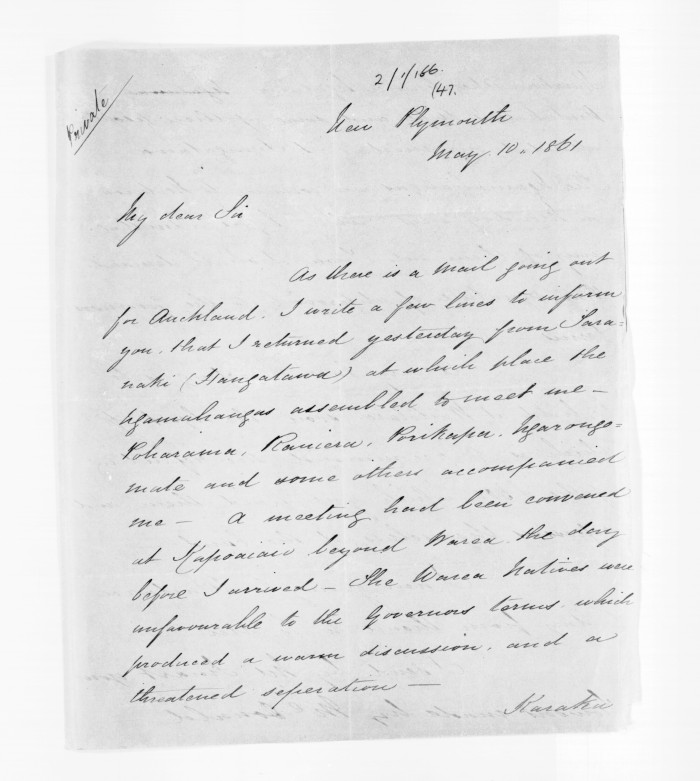 Private
2/1/166.
147.
New Plymouth
May 10. 1861
My dear Sir
As there is a mail going out
for Auckland. I write a few lines to inform
you, that I returned yesterday from Tara-
naki (Hangatawa) at which place the
Ngamahangas assembled to meet me -
Poharama, Raniera, Porikapa, Ngarongo-
mate and some others accompanied
me - A meeting had been convened
at Kapoaiaia beyond Warea the day
before I arrived - The Warea Natives were
unfavourable to the Governors terms. which
produced a warm discussion, and a
threatened seperation -